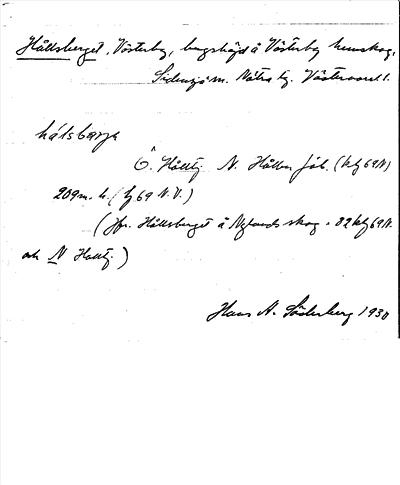 Hållsberget, Västerby, bergshöjd å Västerby hemskog,
Sidensjö sn. Nätra tg. Västernorrl. l.
hálsbarja
Ö. Hålltj. N. Hållen fäb. (kbf 69N)
209 m. h. (bf 69 N.V.)
(jfr. Hållsberget å Nylands skog 02 kbf 69N.
och N Halltj.)
Hans A. Söderberg 1930